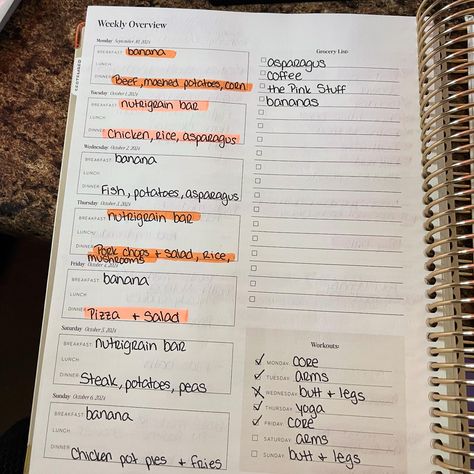 Weekly Overview
Monday September 30, 2024
BREAKFAST: banana
LUNCH:
DINNER: Beef, mashed potatoes, corn
Tuesday October 1, 2024
BREAKFAST: nutrigrain bar
LUNCH:
DINNER: Chicken, rice, asparagus
Wednesday October 2, 2024
BREAKFAST: banana
LUNCH:
DINNER: Fish, potatoes, asparagus
Thursday October 3, 2024
BREAKFAST: nutrigrain bar
LUNCH:
DINNER: Pork chops + Salad, Rice,
mushrooms
Friday October 4, 2024
BREAKFAST: banana
LUNCH:
DINNER: Pizza + Salad
Saturday October 5, 2024
BREAKFAST: nutrigrain bar
LUNCH:
DINNER: Steak, potatoes, peas
Sunday October 6, 2024
BREAKFAST: banana
LUNCH:
DINNER: Chicken pot pies + fries
Grocery List:
asparagus
coffee
the Pink Stuff
bananas
Workouts:
MONDAY: core
TUESDAY: arms
WEDNESDAY: butt + legs
THURSDAY: yoga
FRIDAY: core
SATURDAY: arms
SUNDAY: butt + legs